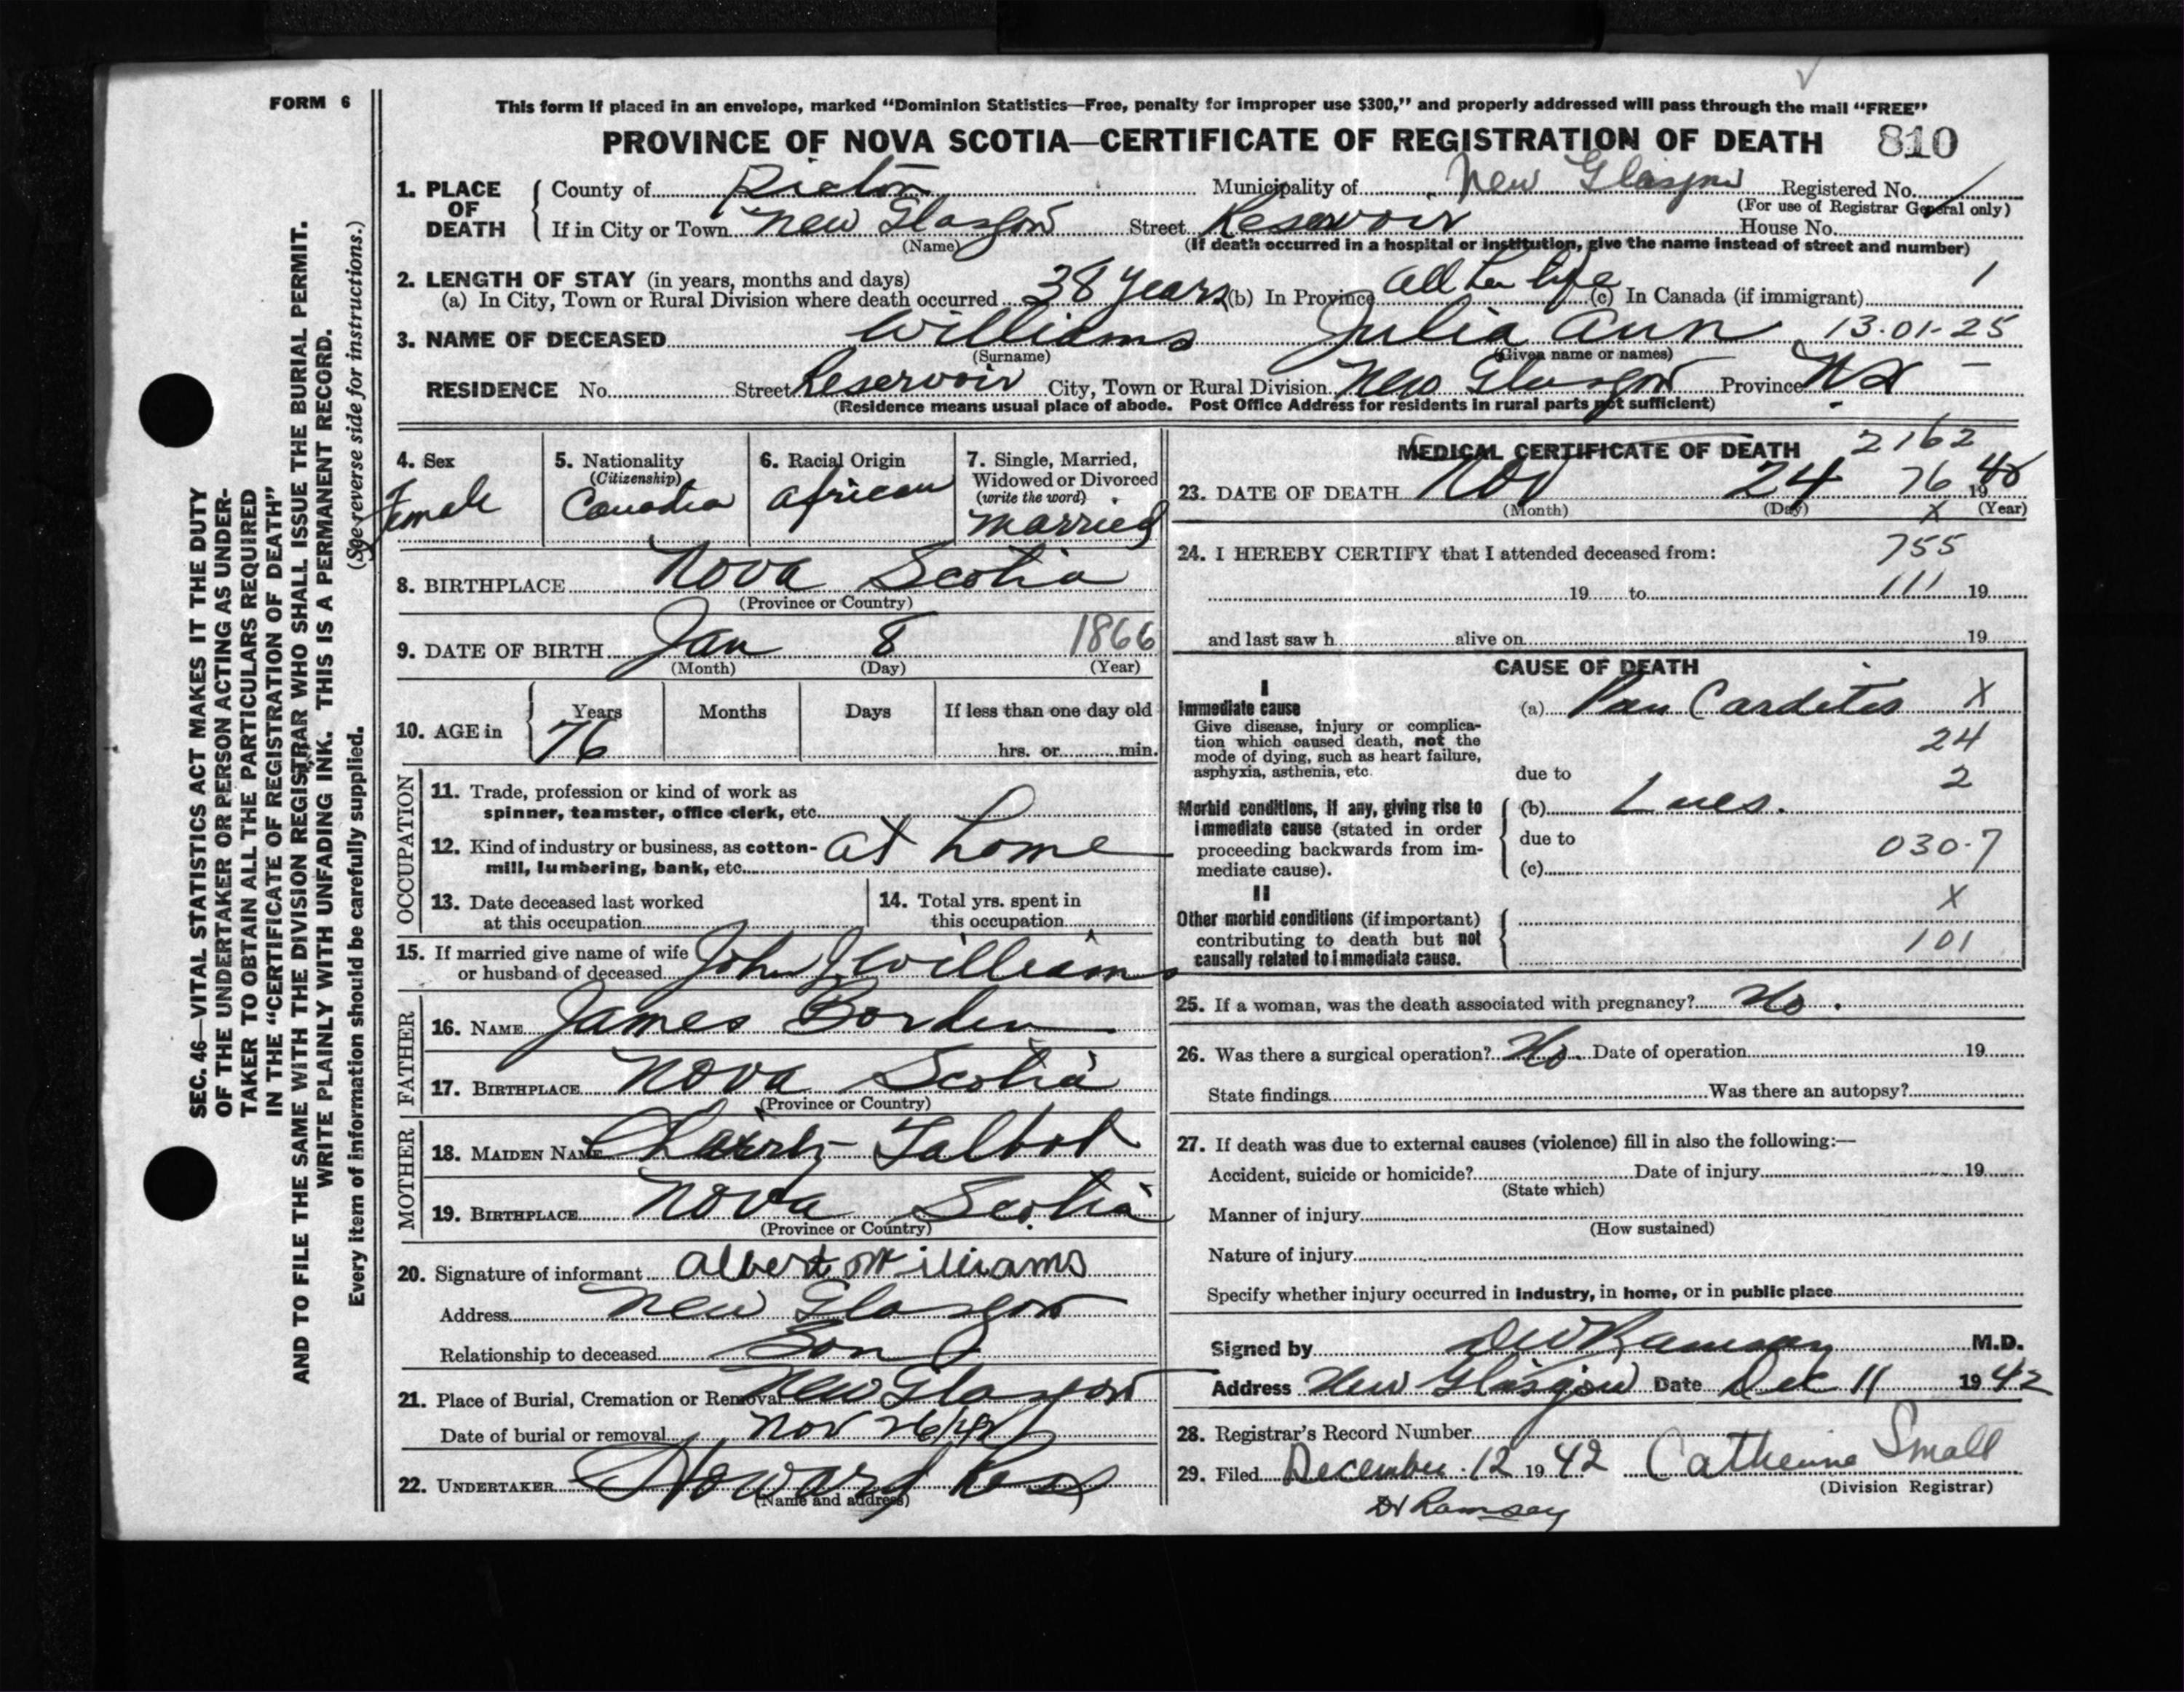 FORM 6
This form if placed in an envelope, marked “Dominion Statistics—Free, penalty for improper use $300,” and properly addressed will pass through the mail “FREE”
PROVINCE OF NOVA SCOTIA—CERTIFICATE OF REGISTRATION OF DEATH 810
1. PLACE OF DEATH
County of Pictou Municipality of New Glasgow Registered No.
(For use of Registrar General only)
If in City or Town New Glasgow Street Reservoir House No.
(Name) (If death occurred in a hospital or institution, give the name instead of street and number)
2. LENGTH OF STAY (in years, months and days) 1
(a) In City, Town or Rural Division where death occurred 38 years (b) In Province all her life (c) In Canada (if immigrant)
3. NAME OF DECEASED Williams Julia Ann 13-01-25
(Surname) (Given name or names)
RESIDENCE No. Street Reservoir City, Town or Rural Division New Glasgow Province N S
(Residence means usual place of abode. Post Office Address for residents in rural parts not sufficient)
4. Sex
Female
5. Nationality
(Citizenship)
6. Racial Origin
African
7. Single, Married,
Widowed or Divorced
(write the word)
Married
8. BIRTHPLACE Nova Scotia
(Province or Country)
9. DATE OF BIRTH Jan 8 1866
(Month) (Day) (Year)
10. AGE in Years Months Days If less than one day old
76 hrs. or min.
OCCUPATION
11. Trade, profession or kind of work as
spinner, teamster, office clerk, etc.
12. Kind of industry or business, as cotton- at home
mill, lumbering, bank, etc.
13. Date deceased last worked
at this occupation
14. Total yrs. spent in
this occupation
15. If married give name of wife
or husband of deceased John J Williams
FATHER
16. NAME James Borden
17. BIRTHPLACE Nova Scotia
(Province or Country)
MOTHER
18. MAIDEN NAME Talbot
19. BIRTHPLACE Nova Scotia
(Province or Country)
20. Signature of informant Albert Williams
Address New Glasgow
Relationship to deceased Son
21. Place of Burial, Cremation or Removal New Glasgow
Date of burial or removal Nov 26/42
22. UNDERTAKER Howard Ross
(Name and address)
MEDICAL CERTIFICATE OF DEATH 2162
23. DATE OF DEATH Nov 24 76 19
(Month) (Day) X (Year)
24. I HEREBY CERTIFY that I attended deceased from: 755
19 to 111 19
and last saw h alive on 19
CAUSE OF DEATH
I
Immediate cause
Give disease, injury or complica-
tion which caused death, not the
mode of dying, such as heart failure,
asphyxia, asthenia, etc.
(a) Pan Carditis X
24
due to 2
Morbid conditions, if any, giving rise to
immediate cause (stated in order
proceeding backwards from im-
mediate cause).
(b) Lues.
due to 030-7
(c)
II
Other morbid conditions (if important)
contributing to death but not
causally related to immediate cause.
X
101
25. If a woman, was the death associated with pregnancy? No.
26. Was there a surgical operation? No. Date of operation 19
State findings Was there an autopsy?
27. If death was due to external causes (violence) fill in also the following:—
Accident, suicide or homicide? Date of injury 19
(State which)
Manner of injury
(How sustained)
Nature of injury
Specify whether injury occurred in industry, in home, or in public place
Signed by D W Ramsay M.D.
Address New Glasgow Date Dec 11 1942
28. Registrar’s Record Number
29. Filed December 12 1942 Catherine Small
(Division Registrar)
Dr Ramsay
SEC. 46—VITAL STATISTICS ACT MAKES IT THE DUTY
OF THE UNDERTAKER OR PERSON ACTING AS UNDER-
TAKER TO OBTAIN ALL THE PARTICULARS REQUIRED
IN THE “CERTIFICATE OF REGISTRATION OF DEATH”
AND TO FILE THE SAME WITH THE DIVISION REGISTRAR WHO SHALL ISSUE THE BURIAL PERMIT.
WRITE PLAINLY WITH UNFADING INK. THIS IS A PERMANENT RECORD.
Every item of information should be carefully supplied. (See reverse side for instructions.)